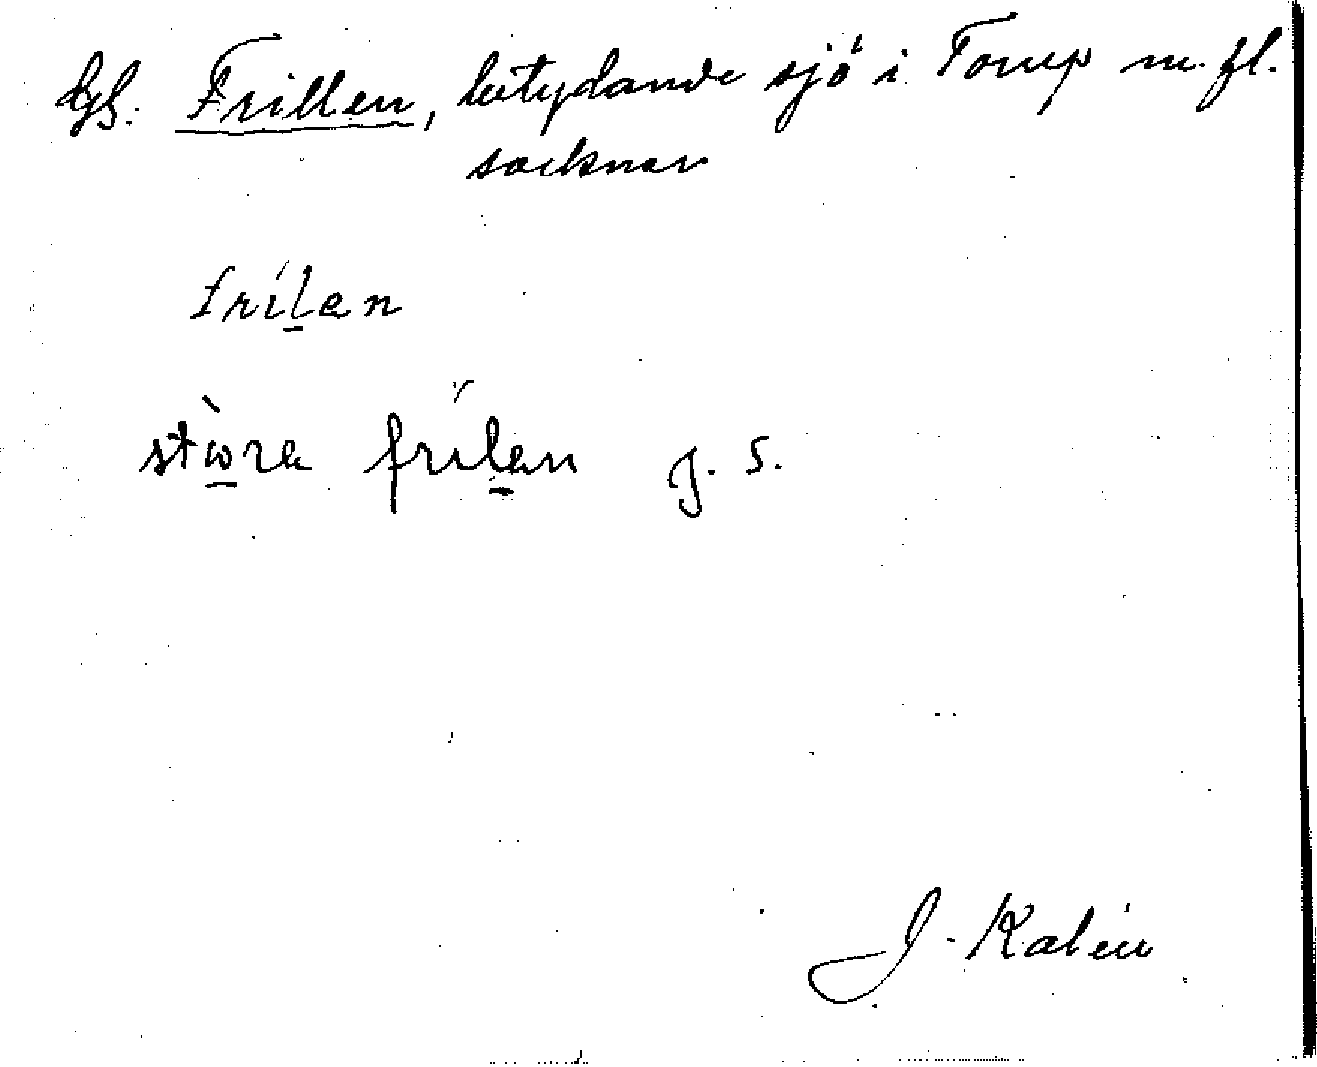 Fgh. Frillen, betydande sjö i Torup m. fl.
socknar
frílen
stòra frílen g. s.
J. Kalén